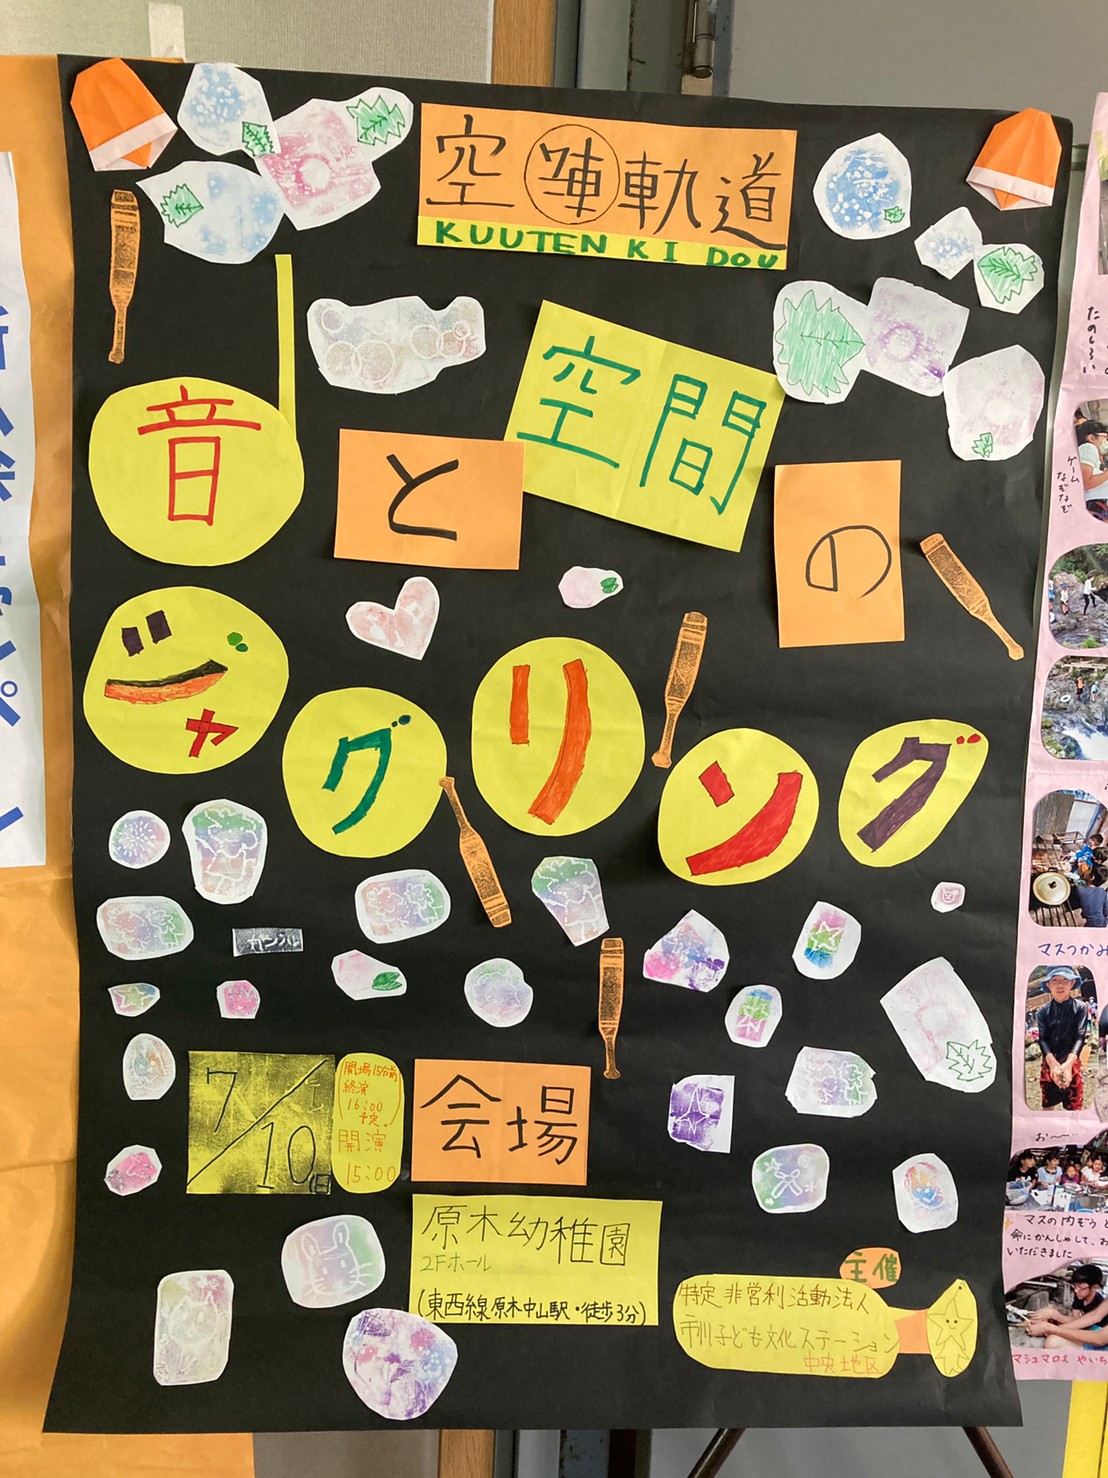 空 軌道
KUUTEN KI DOU
音と空間の
ジャグリング
7/10(日)
開場15分前
終演
(16:00
予定)
開演
15:00
会場
原木幼稚園
2Fホール
(東西線原木中山駅・徒歩3分)
主催
特定非営利活動法人
市川子ども文化ステーション
中央地区
ゲーム
なぞなぞ
マスつかみ
マスの内ぞう
命にかんしゃして、
いただきました